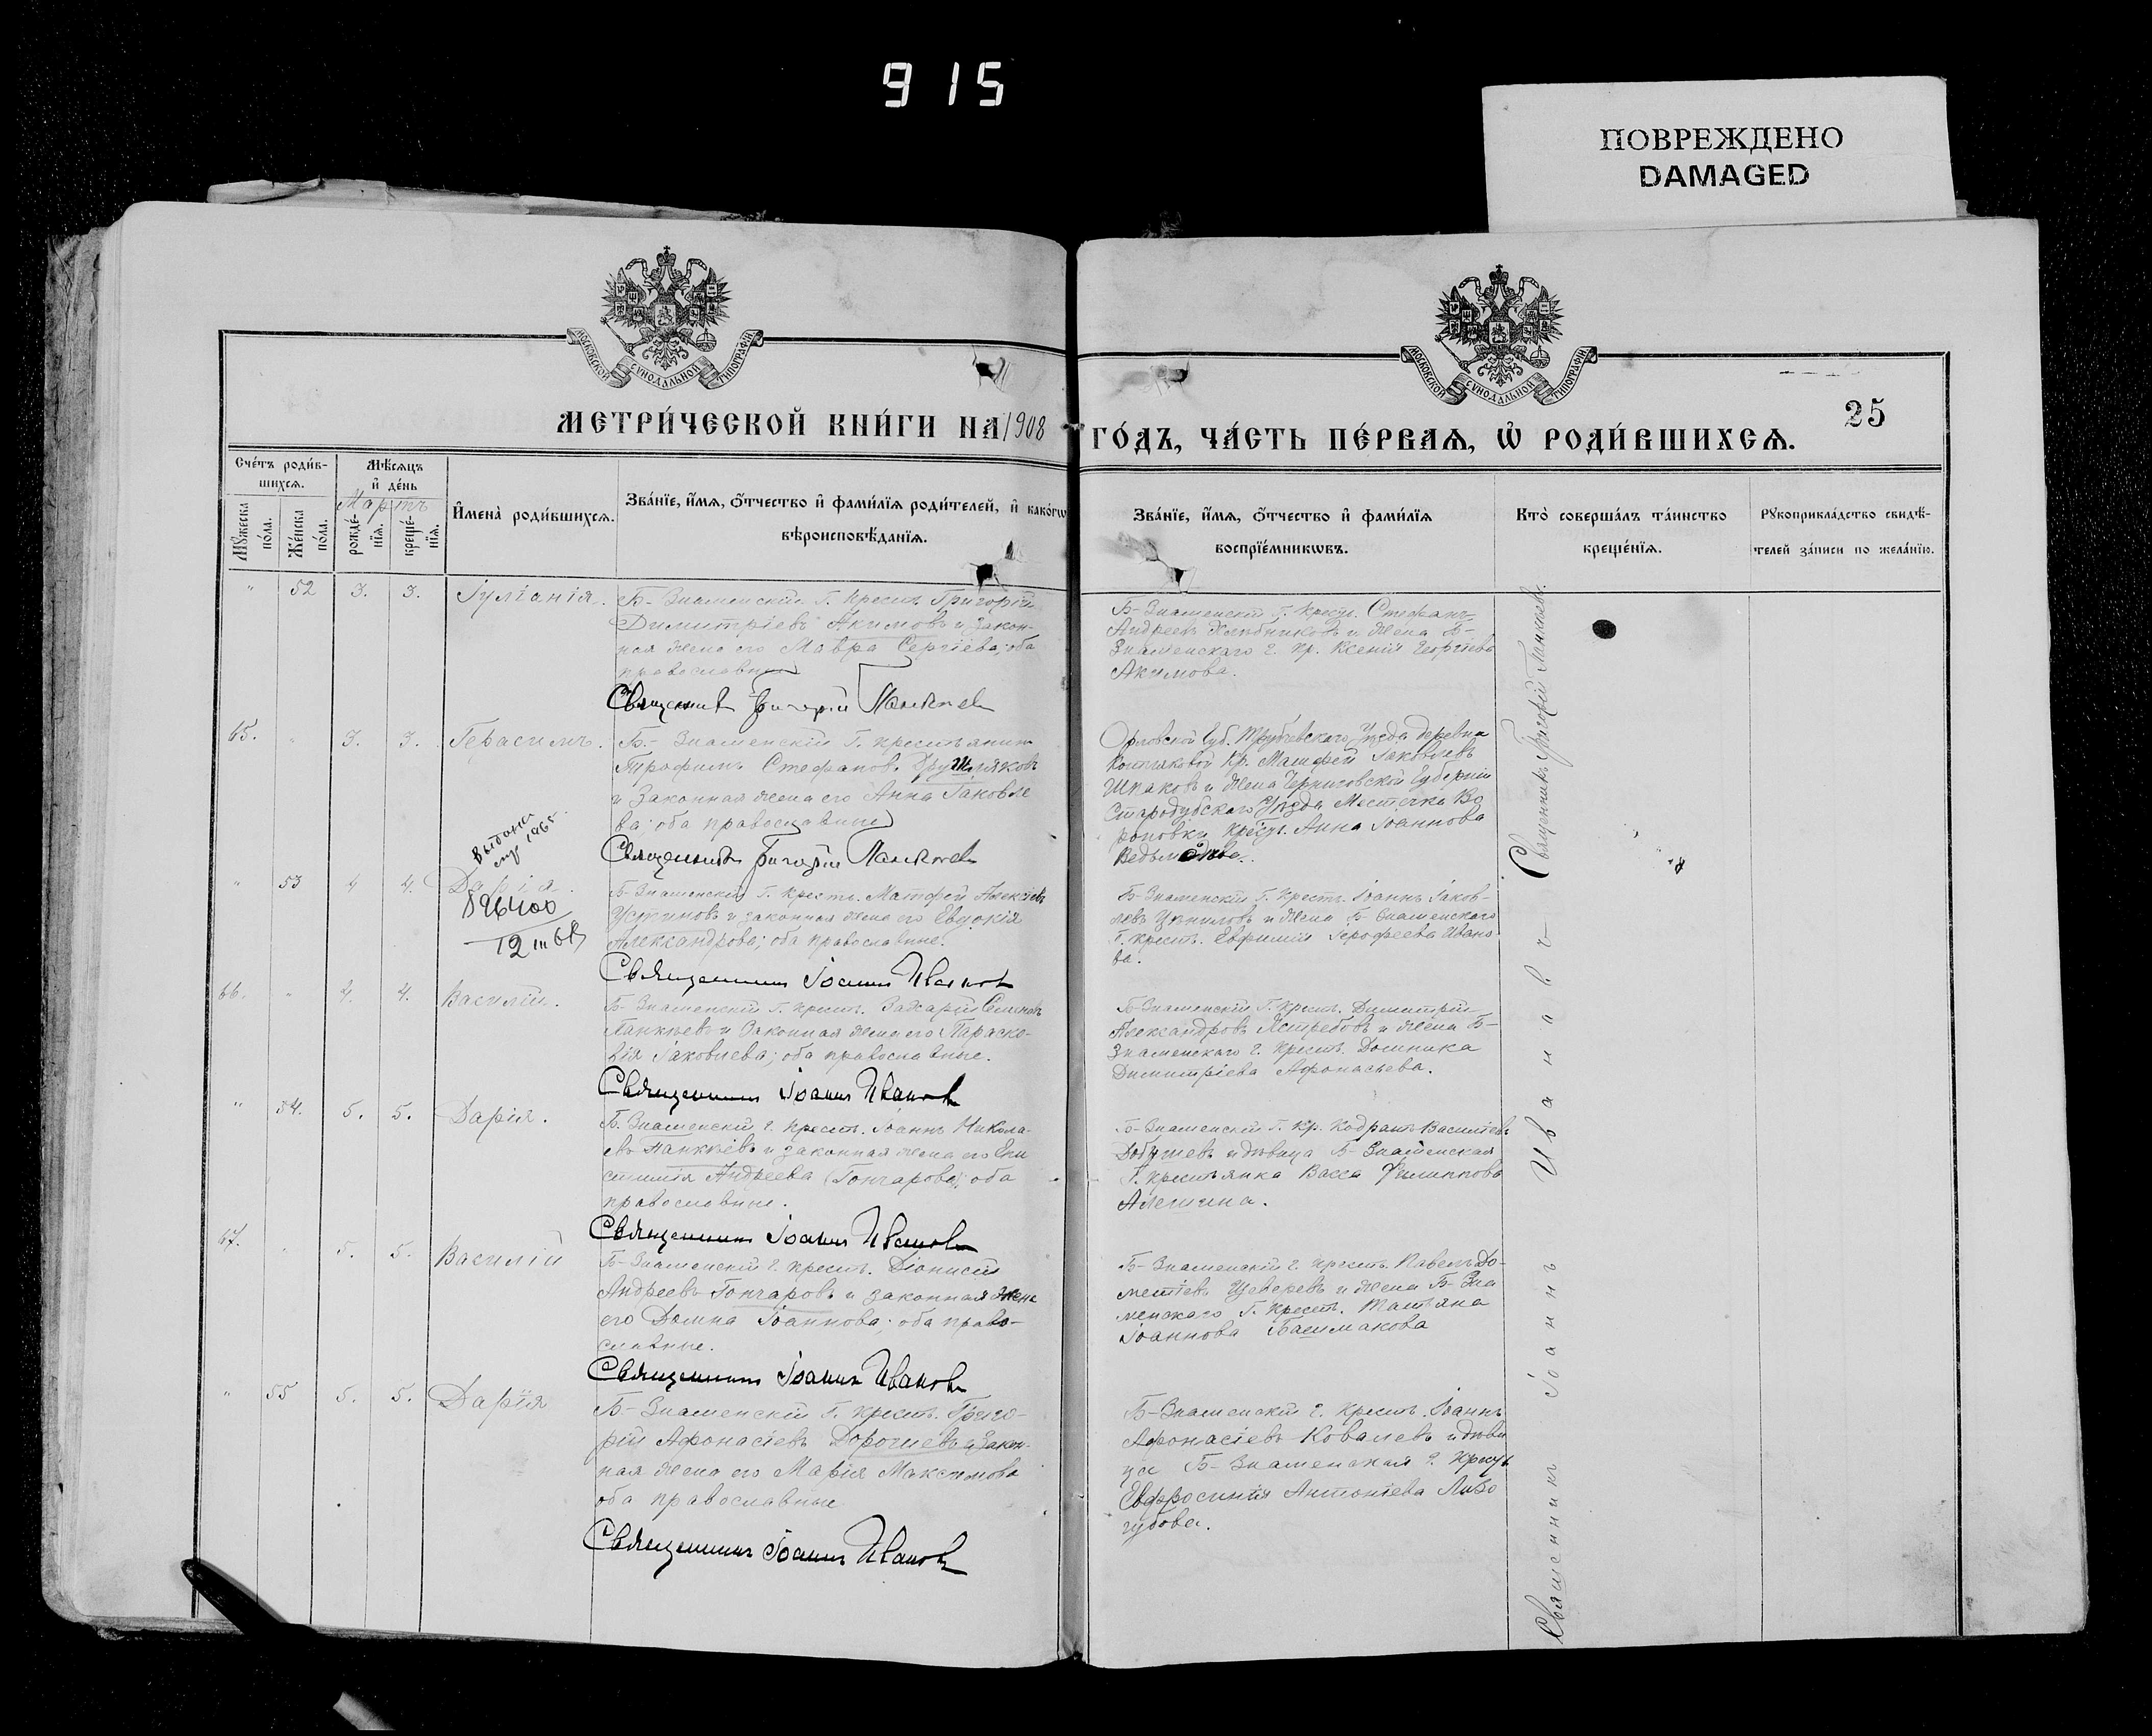 915
ПОВРЕЖДЕНО
DAMAGED
МОСКОВСКОЙ СУНОДАЛЬНОЙ ТИПОГРАФІИ.
МОСКОВСКОЙ СУНОДАЛЬНОЙ ТИПОГРАФІИ.
МЕТРИ́ЧЕСКОЙ КНИ́ГИ НА 1908
ГО́ДЪ, ЧА́СТЬ ПЕ́РВАЯ, Ѡ҆ РОДИ́ВШИХСЯ.
25
Сче́тъ роди́в-
шихся.
Мѣ́сяцъ
и҆ де́нь
Мартъ
Мꙋ́жеска по́ла.
Же́нска по́ла.
рожде́-нїя.
креще́-нїя.
И҆мена̀ роди́вшихся.
Зва́нїе, и҆́мя, ѻ҆́тчество и҆ фами́лїя роди́телей, и҆ како́гѡ
вѣроисповѣ́данїя.
Зва́нїе, и҆́мя, ѻ҆́тчество и҆ фами́лїя
воспрїе́мникѡвъ.
Кто̀ соверша́лъ та́инство
креще́нїя.
Рꙋкоприкла́дство свидѣ́-
телей за́писи по жела́нїю.
" 52 3. 3. Іуліанія.
Б-Знаменскій Г. Крест. Григорій
Димитріевъ Акимовъ и закон-
ная жена его Мавра Сергіева; оба
православные
Священник Григорій Панкѣев
Б-Знаменскій Г. Крест. Стефанъ
Андреевъ Хлѣбниковъ и жена Б-
Знаменскаго Г. Кр. Ксенія Георгіева
Акимова.
65. " 3. 3. Герасимъ.
Б.- Знаменскій Г. крестьянинъ
Трофимъ Стефановъ Друшляковъ
и законная жена его Анна Іаковле
ва; оба православные
Священникъ Григорій Панкѣев
Орловской Губ. Трубчевскаго Уѣзда деревни
Кр. Матфей Іаковлевъ
Шпаковъ и жена Черниговской Губерніи
Стародубскаго Уѣзда Местечка Во
роновки Крест. Анна Іоаннова
" 53 4 4. Дарія.
Выдана
1965
896400
12 III 68
Б-Знаменскій Г. Крест. Матфей Алексіевъ
Устиновъ и законная жена его Евдокія
Александрова; оба православные.
Священникъ Іоаннъ Ивановъ
Б-Знаменскій Г. Крест. Іоаннъ Іаков-
левъ и жена Б-Знаменскаго
Г. крест. Евфимія Іерофеева Ивано
ва.
66. " 4. 4. Василій.
Б-Знаменскій Г. крест. Захарій Семеновъ
Панкѣевъ и законная жена его Параске-
вія Іаковлева; оба православные.
Священникъ Іоаннъ Ивановъ
Б-Знаменскій Г. Крест. Димитрій
Александровъ Ястребовъ и жена Б-
Знаменскаго Г. Крест. Домника
Димитріева Афонасьева.
" 54. 5. 5. Дарія.
Б. Знаменскій Г. Крест. Іоаннъ Никола-
евъ Панкѣевъ и законная жена его Епи
стимія Андреева (Гончарова); оба
православные.
Священникъ Іоаннъ Ивановъ
Б-Знаменскій Г. Кр. Кодратъ Васильевъ
и дѣвица Б-Знаменская
Г. крестьянка Васса Филиппова
Алешина.
67. " 5. 5. Василій
Б-Знаменскій Г. крест. Діонисій
Андреевъ Гончаровъ и законная жена
его Домна Іоаннова; оба право-
славные.
Священникъ Іоаннъ Ивановъ
Б-Знаменскій Г. крест. Павелъ До-
метіевъ и жена Б-Зна
менскаго Г. Крест. Татьяна
Іоаннова Башмакова
" 55 5. 5. Дарія
Б-Знаменскій Г. Крест. Григо-
рій Афонасіевъ Дорошевъ и закон-
ная жена его Марія Максимова
оба православные
Священникъ Іоаннъ Ивановъ
Б-Знаменскій Г. Крест. Іоаннъ
Афонасіевъ Ковалевъ и дѣви
ца Б-Знаменская Г. Крест.
Евфросинія Антоніева Лизо
губова.
Священникъ Григорій Панкѣевъ.
Священникъ Іоаннъ Ивановъ